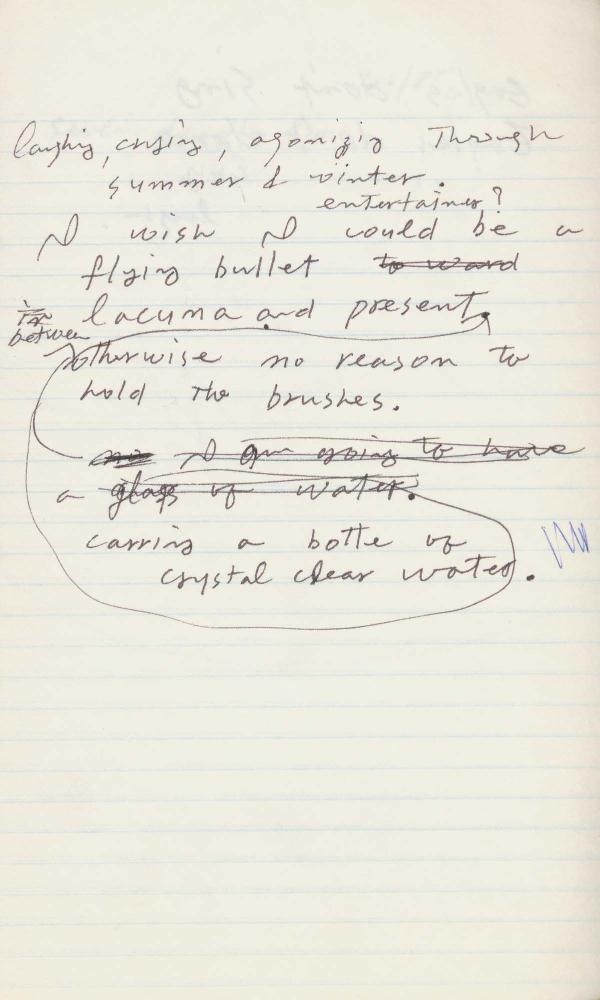 laughing, crying, agonizig Through
summer & winter.
entertainer?
I wish I could be a
flying bullet to ward
in between lacuma and present.
otherwise no reason to
hold The brushes.
no I am going to have
a glass of water.
carring a botte of
crystal clear water.